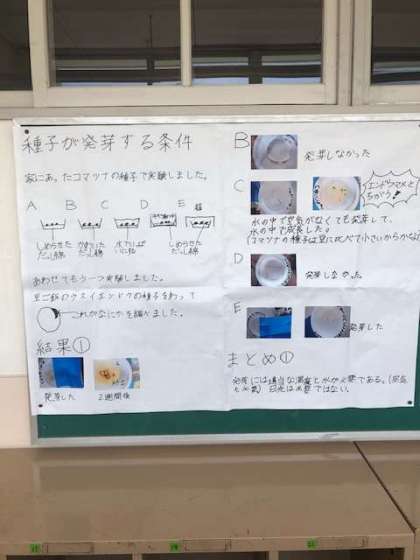 種子が発芽する条件
家にあったコマツナの種子で実験しました。
A B C D E
しめらせた
だっし綿
かわいた
だっし綿
水で
いに
しめらせた
だっし綿
あわせてもう一つ実験しました。
豆ご飯のウスイエンドウの種子を わって
これがなにかを調べました。
結果①
発芽した
2週間後
B
発芽しなかった
C
エンドウマメと
ちがう!
水の中で空気がなくても発芽して、
水の中で成長した。
(コマツナの種子は豆に比べて小さいからかな
D
発芽しなかった
E
発芽した
まとめ①
発芽には適当な温度と水が必要である。
も必要) 日光は必要ではない。